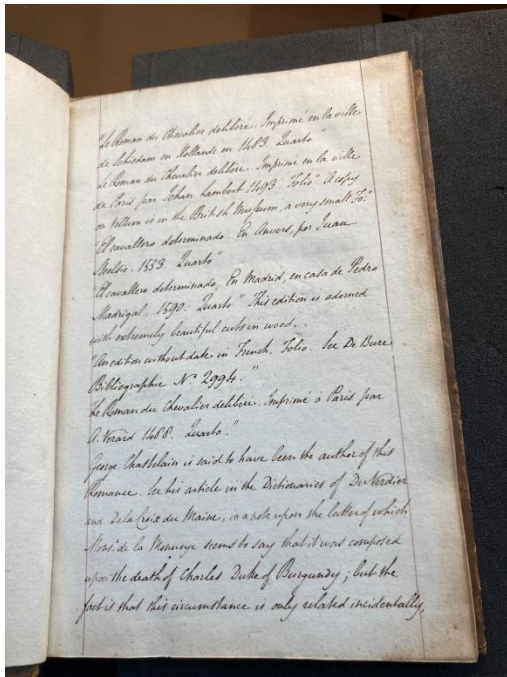 "Le Roman du Chevalier delibere. Imprimé en la ville
de Schiedam en Hollande en 1483. Quarto"
Le Roman du Chevalier delibere. Imprimé en la ville
de Paris par Jehan Lambert 1493. Folio" A copy
on Vellum is in the British Museum, a very small Fo:
"El cavallero determinado. En Anvers, por Juan
Steelsio. 1553. Quarto"
"El cavallero determinado, En Madrid, en casa de Pedro
Madrigal. 1590. Quarto" This edition is adorned
with extremely beautiful cuts in wood.
"An edition without date in French. Folio. See De Bure
Bibliographie No. 2994."
Le Roman du Chevalier delibere. Imprimé à Paris par
A. Verard 1488. Quarto."
George Chastelain is said to have been the author of this
Romance. See his article in the Dictionaries of Du Verdier
and De la Croix du Maine, in a note upon the latter of which
Monsr. de la Monnoye seems to say that it was composed
upon the death of Charles Duke of Burgundy; but the
fact is that this circumstance is only related incidentally,